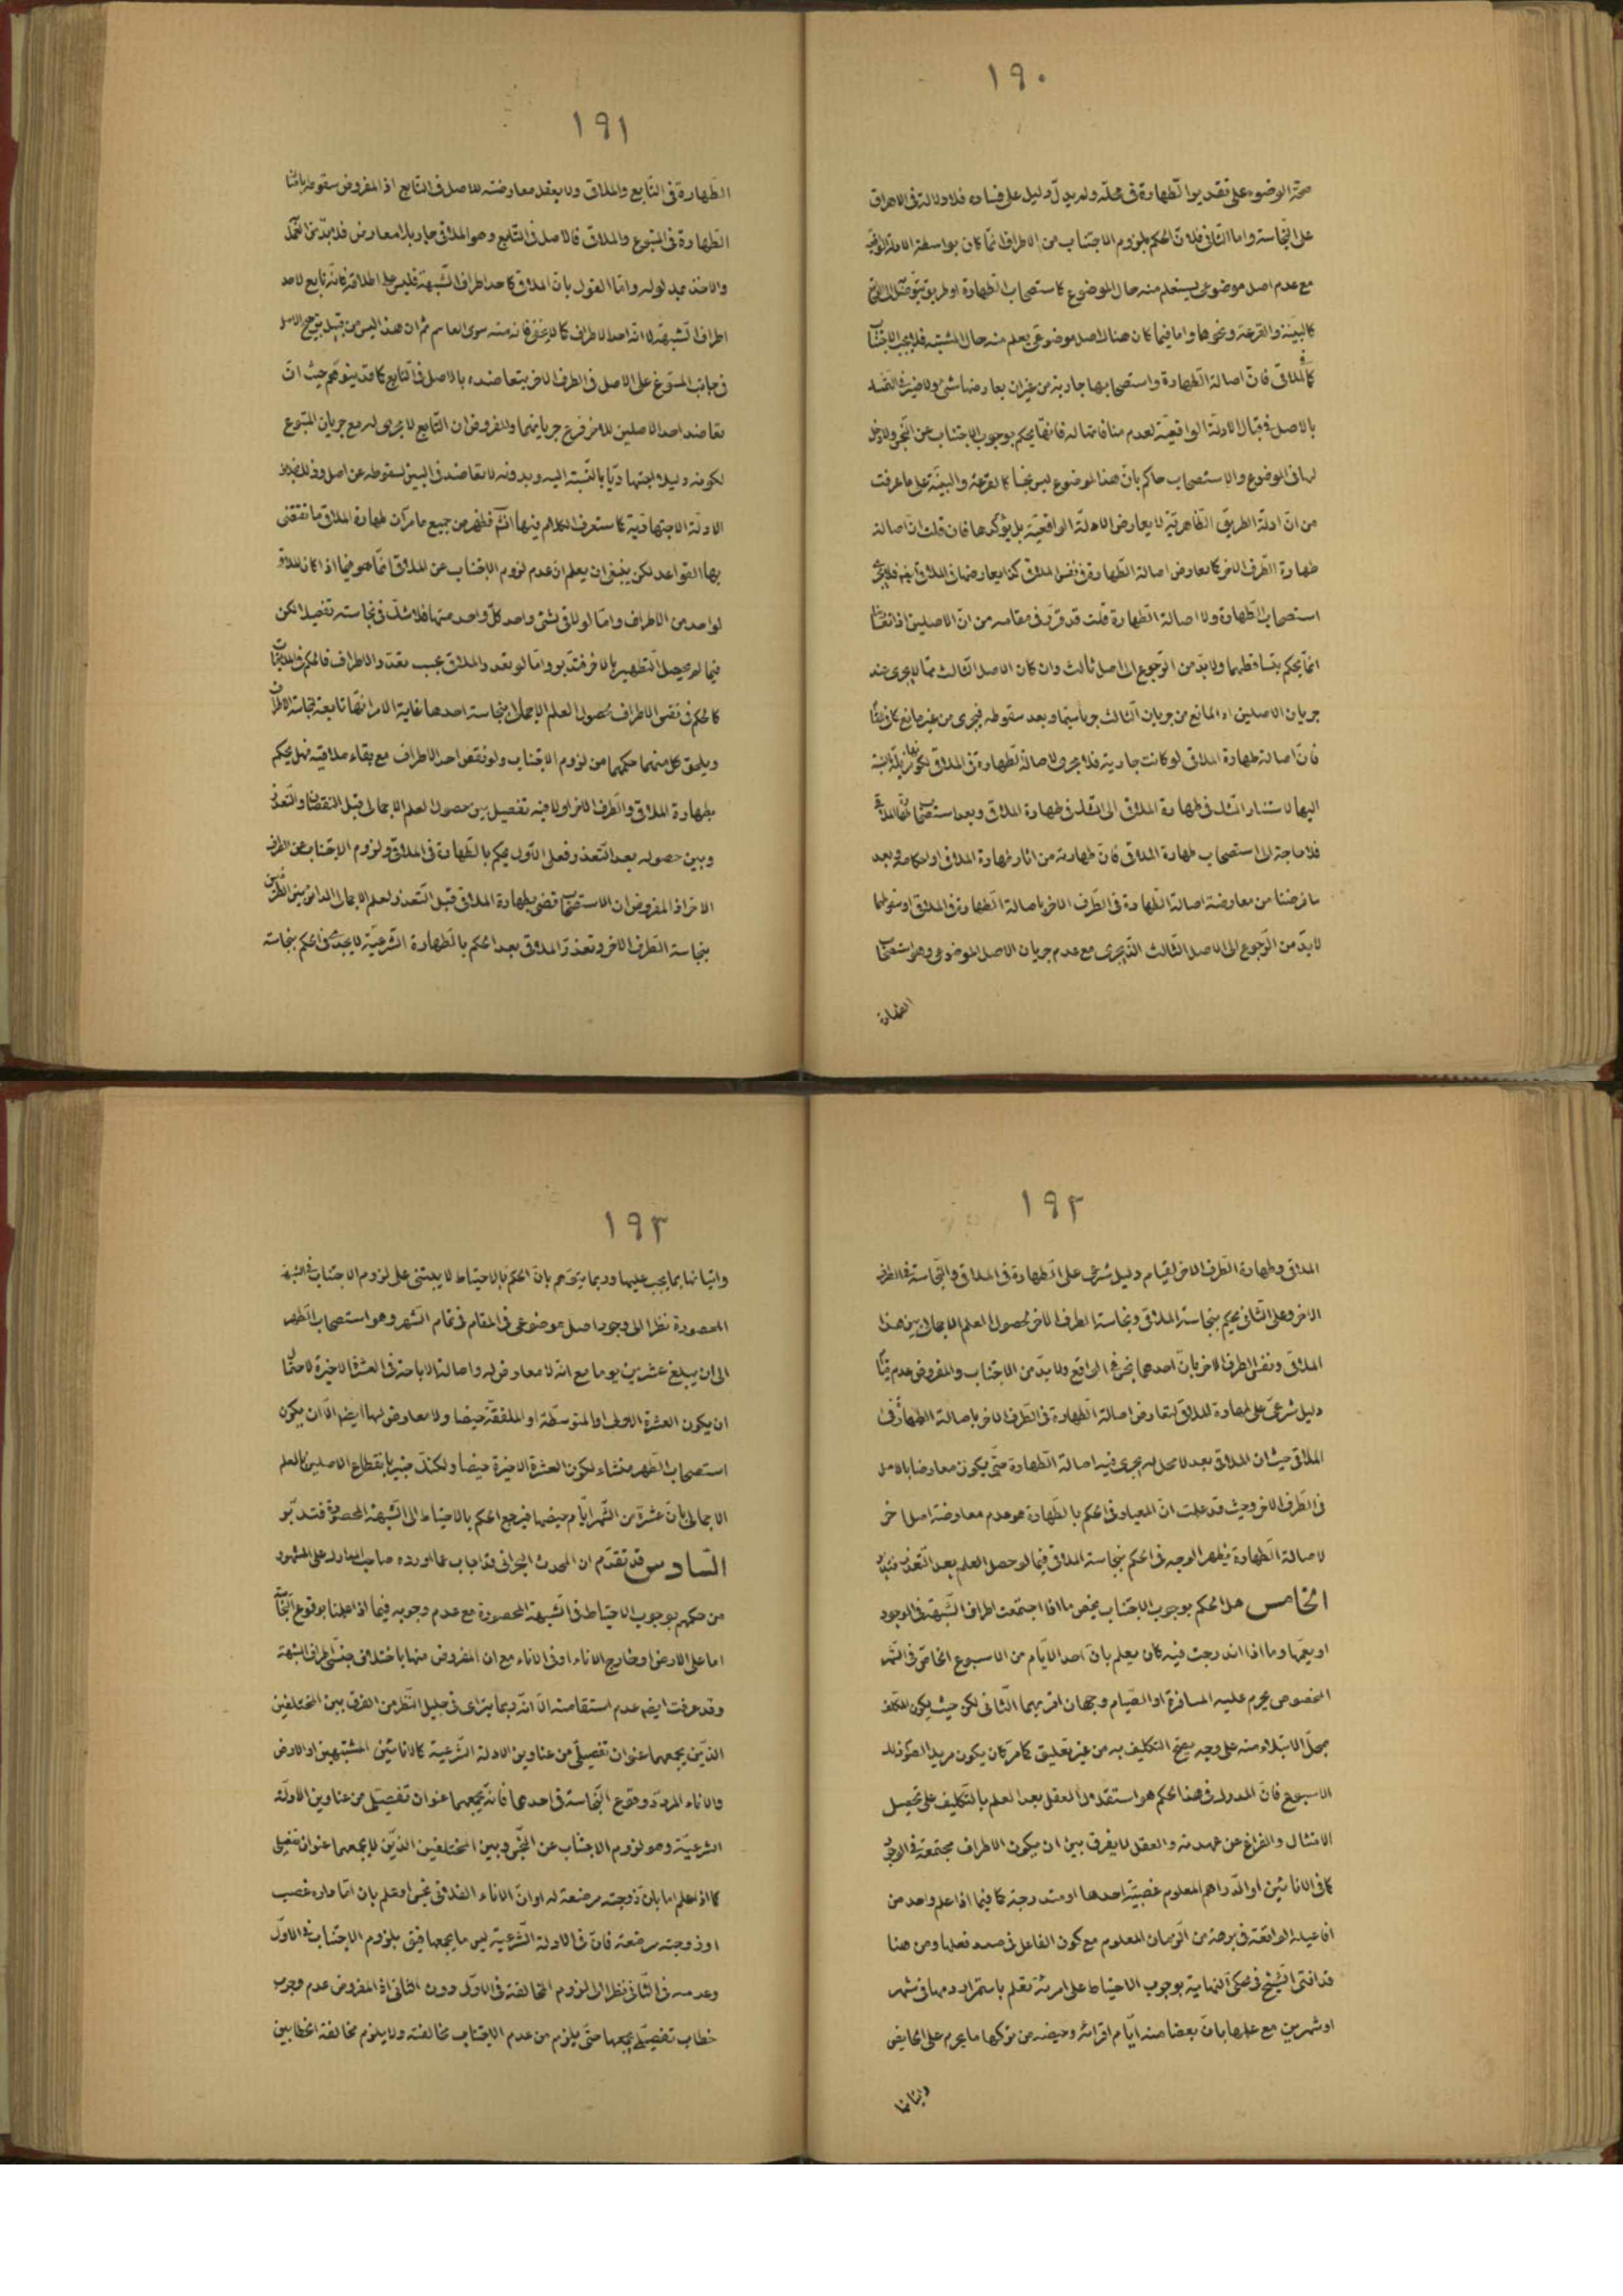 ١٩٠
صحّة الوضوء على تقدير الطّهارة فى محلّه ولم يدلّ دليل على فساده فلا دلالة فى الاهراق
على النّجاسة واما الثانى فلانّ الحكم بلزوم الاجتناب من الاطراف انّما كان بواسطة الادلة الواقعية
مع عدم اصل موضوعى يستعلم منه حال الموضوع كاستصحاب الطّهارة او طريق يتوصّل الى الواقع
كالبيّنة والقرعة ونحوها واما فيما كان هناك اصل موضوعى يعلم منه حال المشتبه فلا يجب الاجتناب
كالملاقى فانّ اصالة الطّهارة واستصحابها جارية من غير ان يعارضها شئ ولا ضير فى
بالاصل فى قبال الادلة الواقعيّة لعدم منافاتها له فانّها يحكم بوجوب الاجتناب عن النّجس ولا دخل
لها فى الموضوع والاستصحاب حاكم بانّ هذا الموضوع ليس نجسا كالقرعة والبيّنة على ما عرفت
من انّ ادلّة الطريق الظّاهريّة لا يعارض الادلّة الواقعيّة بل يؤكّدها فان قلت انّ اصالة
طهارة الطّرف الاخر كما يعارض اصالة الطّهارة فى نفس الملاقى كذا يعارضها فى الملاقى ايضا فلا يجرى
استصحاب الطّهارة ولا اصالة الطّهارة قلت قد قرّر فى مقامه من انّ الاصلين اذا تعارضا
انّما يحكم بتساقطهما ولا بدّ من الرّجوع الى اصل ثالث وان كان الاصل الثّالث ممّا لا يجرى عند
جريان الاصلين اذ المانع من جريان الثّالث جريانهما وبعد سقوطه فيجرى من غير مانع كما فى
فانّ اصالة طهارة الملاقى لو كانت جارية فلا يجرى اصالة الطّهارة فى الملاقى لكونها مزيلة بالنسبة
اليها لاستناد الشّك فى طهارة الملاقى الى الشّك فى طهارة الملاقى وبعد استصحاب
فلا حاجة الى استصحاب طهارة الملاقى فانّ طهارته من اثار طهارة الملاقى او احكامه وبعد
ما فرضنا من معارضة اصالة الطّهارة فى الطّرف الاخر باصالة الطّهارة فى الملاقى وسقوطهما
لا بدّ من الرّجوع الى الاصل الثّالث الذّى يجرى مع عدم جريان الاصل الموضوعى وهو استصحاب
الطهارة
١٩١
الطّهارة فى التّابع والملاقى ولا يعقل معارضته للاصل فى التابع اذ المفروض سقوطه
الطّهارة فى المتبوع والملاقى فالاصل فى التّابع وهو الملاقى جار بلا معارض فلا بدّ من
والاخذ بمدلوله وامّا القول بانّ الملاقى كاحد اطراف الشّبهة فليس على اطلاقه فانّه تابع لاحد
اطراف الشّبهة لا انّه احد الاطراف كما لا يخفى فانه منه سوى العاسم ثم ان هذا ليس من قبيل ترجيح الاصل
فى جانب المتبوع على الاصل فى الطرف الاخر بتعاضده بالاصل فى التّابع كما قد يتوهّم حيث انّ
تعاضد احد الاصلين للاخر فرع جريانهما والمفروض ان التّابع لا يجرى له مع جريان المتبوع
لكونه دليلا اجتهاديّا بالنّسبة اليه وبدونه لا تعاضد فى البين لسقوطه عن اصل وذلك بخلاف
الادلّة الاجتهاديّة كما ستعرف الكلام فيها انشآء فظهر من جميع ما مرّ ان طهارة الملاقى ما تقتضى
بها القواعد لكن ينبغى ان يعلم ان عدم لزوم الاجتناب عن الملاقى انّما هو فيما اذا كان الملاقى
لواحد من الاطراف وامّا لو لاقى شئ واحد كلّ واحد منها فلا شكّ فى نجاسته تفصيلا لكن
فيما لم يحصل التّطهير بالاخر فتدبر وامّا لو تعدد الملاقى بحسب تعدّد الاطراف فالحكم فى الملاقيات
كالحكم فى نفس الاطراف لحصول العلم الاجمالى بنجاسة احدهما غاية الامر انّها تابعة لنجاسة الاطراف
ويلحق كل منهما حكمهما من لزوم الاجتناب ولو نقص احد الاطراف مع بقاء ملاقيه فهل يحكم
بطهارة الملاقى والطّرف الاخر اولا فيه تفصيل بين حصول العلم الاجمالى قبل النقصان والتّعذر
وبين حصوله بعد التّعذر فعلى الاوّل يحكم بالطّهارة فى الملاقى ولزوم الاجتناب عن الطرف
الاخر اذ المفروض ان الاستصحاب قضى بطهارة الملاقى قبل التّعذر والعلم الاجمالى الدائر بين الطرفين
بنجاسة الطّرف الاخر وتعذر الملاقى بعد الحكم بالطّهارة الشّرعيّة لا يجدى فى الحكم بنجاسة
١٩٢
الملاقى وطهارة الطّرف الاخر لقيام دليل شرعى على الطّهارة فى الملاقى والنّجاسة فى الطرف
الاخر وعلى الثّانى يحكم بنجاسة الملاقى ونجاسة الطرف الاخر لحصول العلم الاجمالى بين هذا
الملاقى ونفس الطرف الاخر بانّ احدهما نجس فى الواقع ولا بدّ من الاجتناب والمفروض عدم قيام
دليل شرعىّ على طهارة الملاقى لتعارض اصالة الطّهارة فى الطّرف الاخر باصالة الطّهارة فى
الملاقى حيث ان الملاقى بعد لا محل له يجرى فيه اصالة الطّهارة حتّى يكون معارضا بالاصل
فى الطّرف الاخر وحيث قد علمت انّ المعيار فى الحكم بالطّهارة هو عدم معارضة اصل اخر
لاصالة الطّهارة يظهر الوجه فى الحكم بنجاسة الملاقى فيما لو حصل العلم بعد التّعذر فتدبّر
الخامس هل الحكم بوجوب الاجتناب يخصّ ما اذا اجتمعت اطراف الشّبهة فى الوجود
او يعمّها وما اذا اندرجت فيه كان يعلم بانّ احد الايّام من الاسبوع الخاصّ فى الشّهر
المخصوص يحرم عليه المسافرة او الصّيام وجهان اقربهما الثّانى لكن حيث يكون المكلّف
محلّ الابتلاء منه على وجه يصحّ التكليف به من غير تعليق كما مرّ كان يكون مريدا للصّوم فى ذلك
الاسبوع فانّ المدرك فى هذا الحكم هو استقلال العقل بعد العلم بالتّكليف على تحصيل
الامتثال والفراغ عن عهدته والعقل لا يفرق بين ان يكون الاطراف مجتمعة فى الوجود
كما فى الانائين او الدّراهم المعلوم غصبيّة احدها او متدرجة كما فيما اذا علم واحد من
افاعيله الواقعة فى برهة من الزّمان المعلوم مع كون الفاعل فى صدد فعلها ومن هنا
قد افتى الشّيخ فى محكى النهاية بوجوب الاحتياط على امرئة تعلم باستمرار دمها فى شهر
او شهرين مع علمها بانّ بعضا منه ايّام اقرائه وحيضه من تركها ما يحرم على الحايض
واتيانها
١٩٣
واتيانها بما يجب عليها وربما يتوهّم بانّ الحكم بالاحتياط لا يبتنى على لزوم الاجتناب فى الشبهة
المحصورة نظرا الى وجود اصل موضوعى فى المقام فى تمام الشّهر وهو استصحاب الطّهر
الى ان يبلغ عشرين يوما مع انّه لا معارض له واصالة الاباحة فى العشرة الاخيرة لاحتمال
ان يكون العشرة الاولى او المتوسّطة او الملفّقة حيضا ولا معارض لها ايضا الّا ان يكون
استصحاب الطّهر منشاء لكون العشرة الاخيرة حيضا ولكنّك خبير بانقطاع الاصلين بالعلم
الاجمالى بانّ عشرة من الشّهر ايّام حيضها فيرجع الحكم بالاحتياط الى الشّبهة المحصورة فتدبّر
السّادس قد تقدّم ان المحدث البحرانى قد اجاب عما اورده صاحب المدارك على المشهور
من حكمهم بوجوب الاحتياط فى الشّبهة المحصورة مع عدم وجوبه فيما اذا علمنا بوقوع النّجاسة
اما على الارض او خارج الاناء او فى الاناء مع ان المفروض منها باختلاف جنسى اطراف الشبهة
وقد عرفت ايضا عدم استقامته الّا انّه ربما يترائى فى جليل النّظر من الفرق بين المختلفين
الذّين يجمعهما عنوان تفصيلى من عناوين الادلة الشّرعيّة كالانائين المشتبهين او الارض
والاناء المردّد وقوع النّجاسة فى احدهما فانّه يجمعهما عنوان تفصيلى من عناوين الادلّة
الشرعيّة وهو لزوم الاجتناب عن النّجس وبين المختلفين الذّين لا يجمعهما عنوان تفصيلى
كما اذا علم اما بانّ زوجته مرضعة له او انّ الاناء الفلانى نجس او علم بان امّا داره غصب
او زوجته مرضعة فانّ فى الادلة الشّرعيّة ليس ما يجمعهما فيق بلزوم الاجتناب فى الاوّل
وعدمه فى الثّانى نظرا الى لزوم المخالفة فى الاوّل دون الثانى اذ المفروض عدم وجود
خطاب تفصيلى يجمعهما حتّى يلزم من عدم الاجتناب مخالفته ولا يلزم مخالفة الخطابين